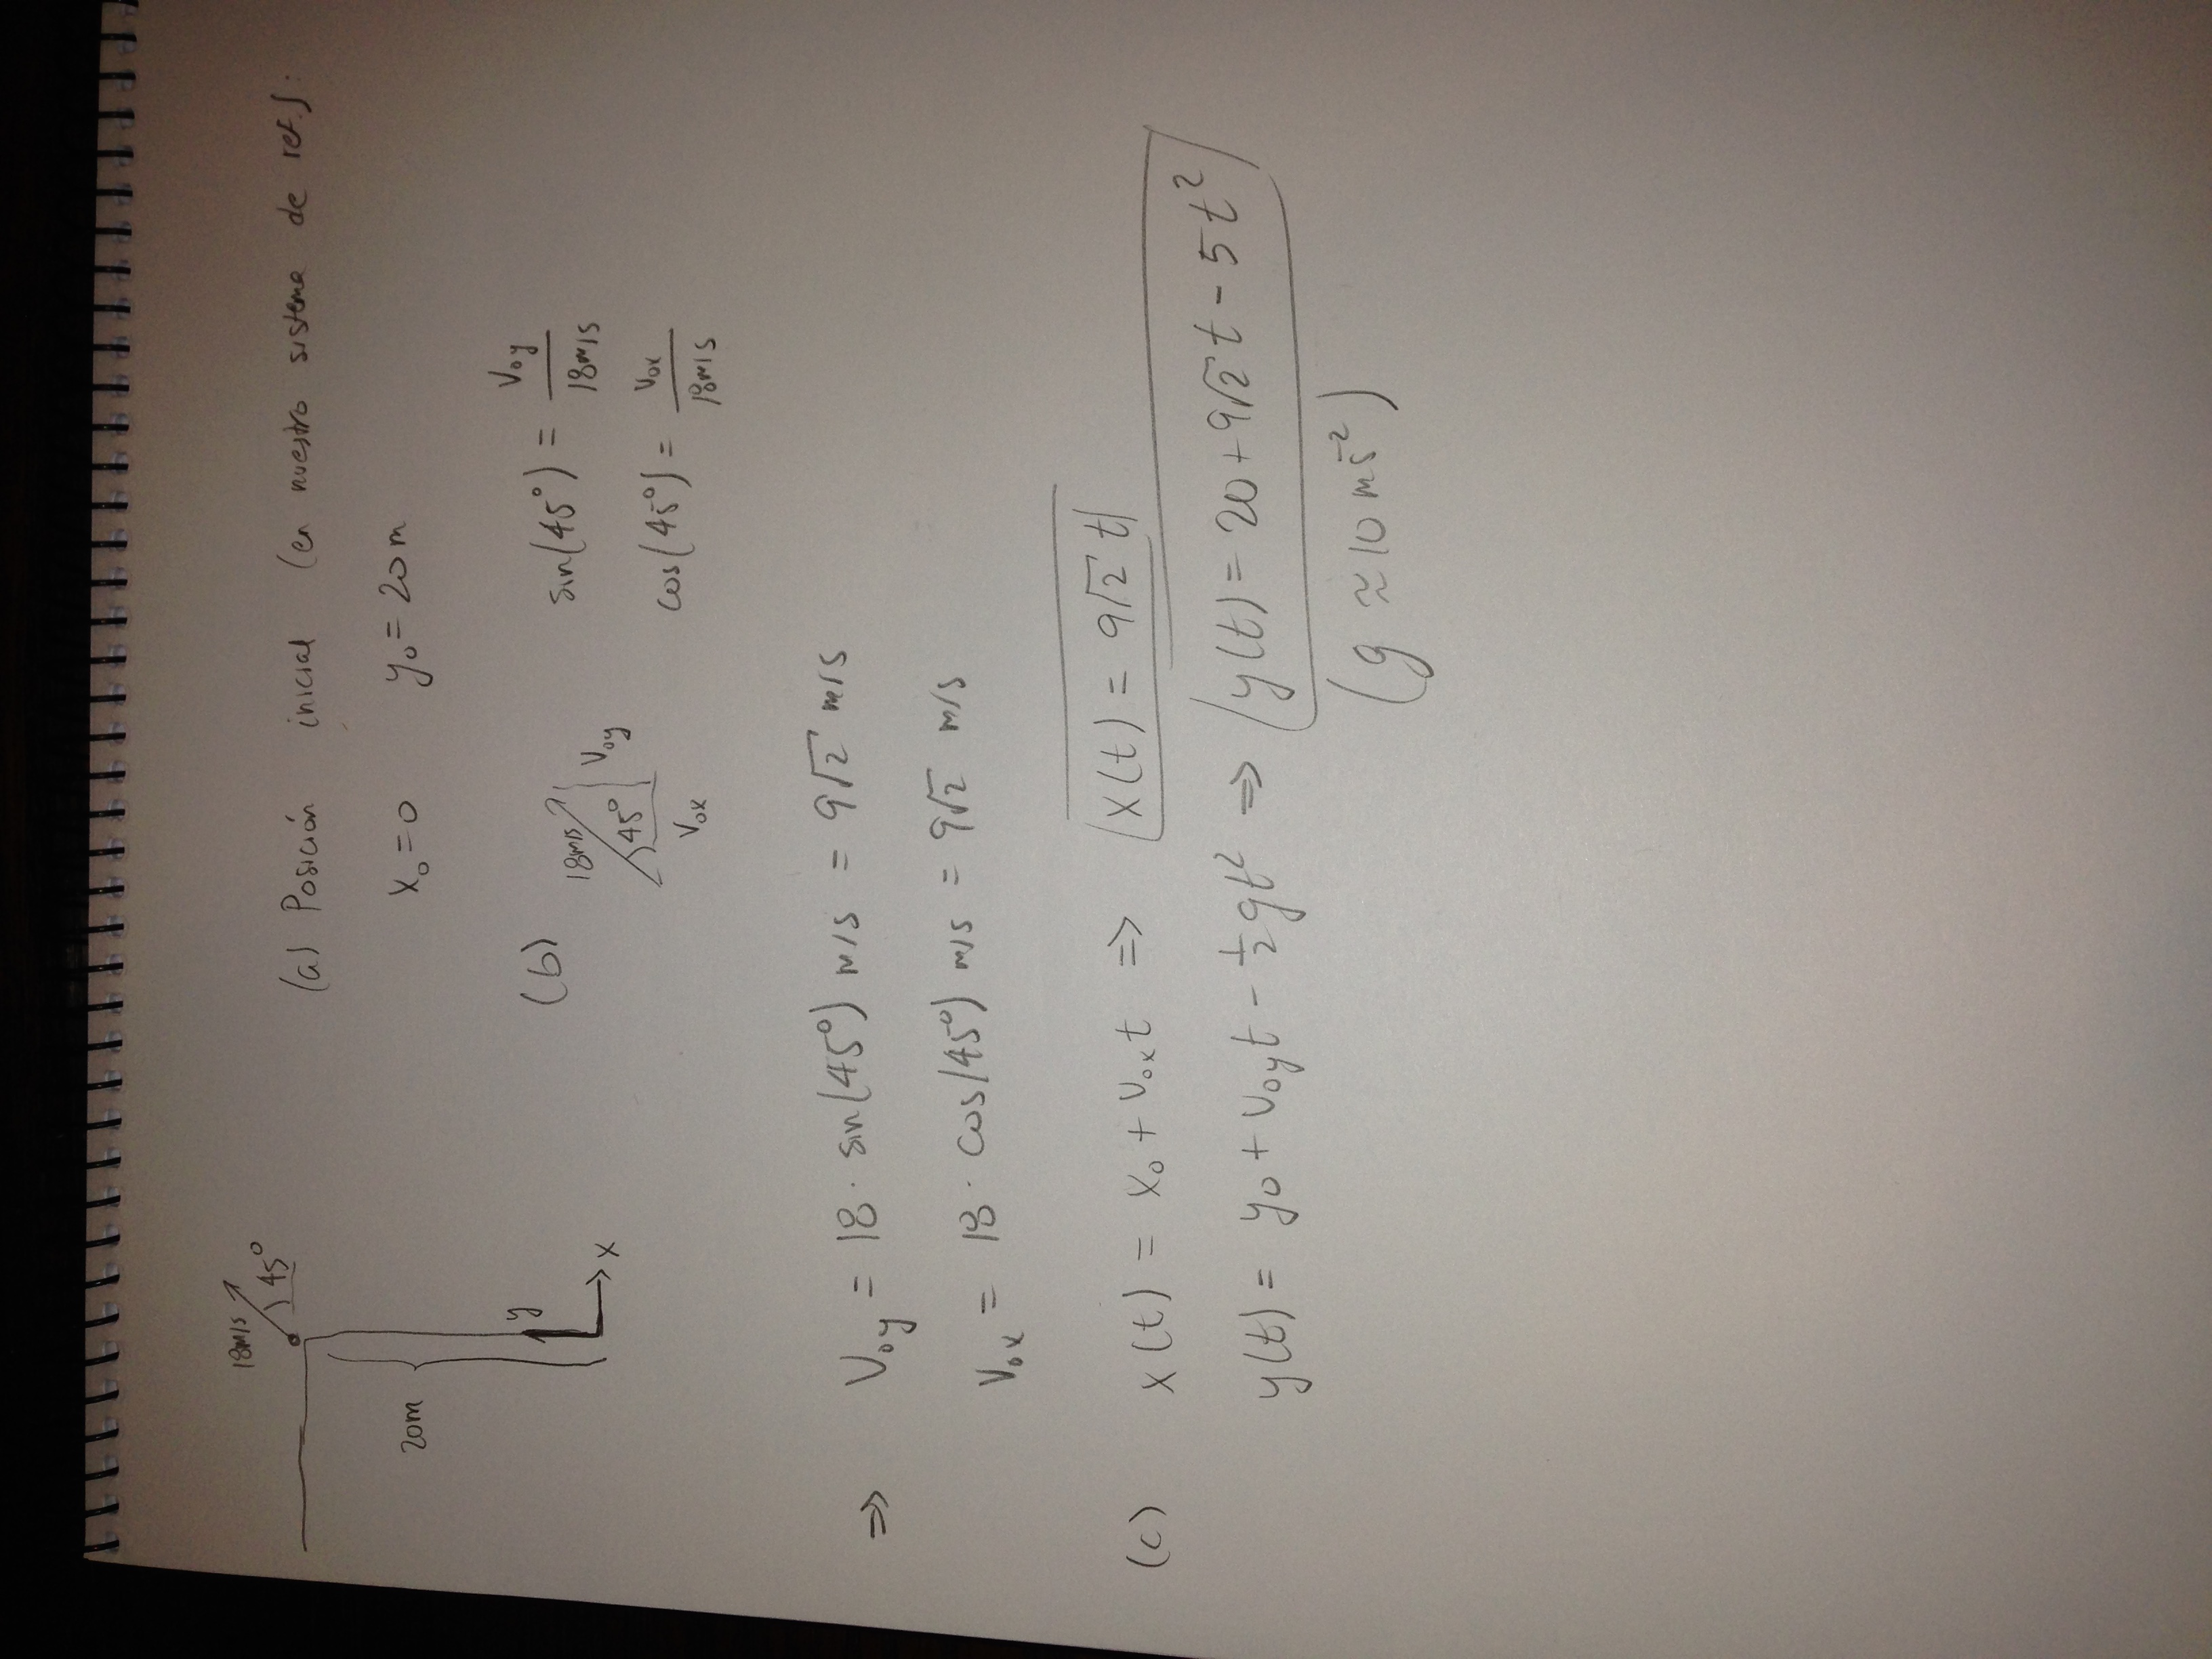 18m/s
45°
20m
y
x
(a) Posición inicial (en nuestro sistema de ref):
x₀=0 y₀=20m
(b) 18m/s 45° V₀y V₀x
sin(45°) = V₀y/18m/s
cos(45°) = V₀x/18m/s
⇒ V₀y = 18 · sin(45°) m/s = 9√2 m/s
V₀x = 18 · cos(45°) m/s = 9√2 m/s
(c) x(t) = x₀ + V₀xt ⇒ x(t) = 9√2 t
y(t) = y₀ + V₀yt - ½gt² ⇒ y(t) = 20 + 9√2 t - 5t²
(g ≈ 10 ms⁻²)